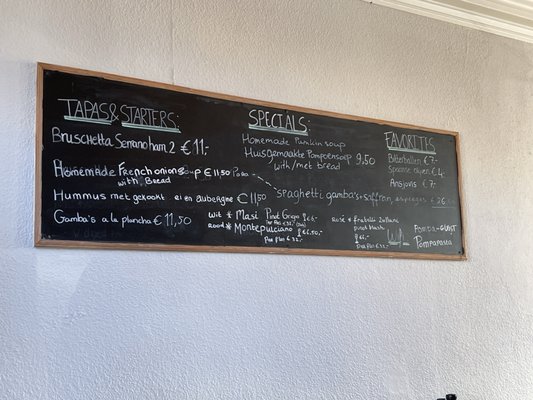 TAPAS & STARTERS:
Bruschetta Serranoham 2 €11,-
Homemade French onionsoup €11,50
with, Bread
Hummus met gekookt ei en aubergine €11,50
Gamba's a la plancha €11,50
SPECIALS:
Homemade Punkin soup
Huisgemaakte Pompoensoup 9,50
with/met bread
Pasta
Spaghetti gamba's + saffron, asperges € 26
Wit * Masi Pinot Grigio €6,-
Per fles €32,-
Rood * Montepulciano €6,50,-
Per fles €32,-
Rosé *
pinot blush
€6,-
Per fles €32,-
FAVORITES
Bitterballen €7,-
Spaanse olijven €4,-
Ansjovis €7,-